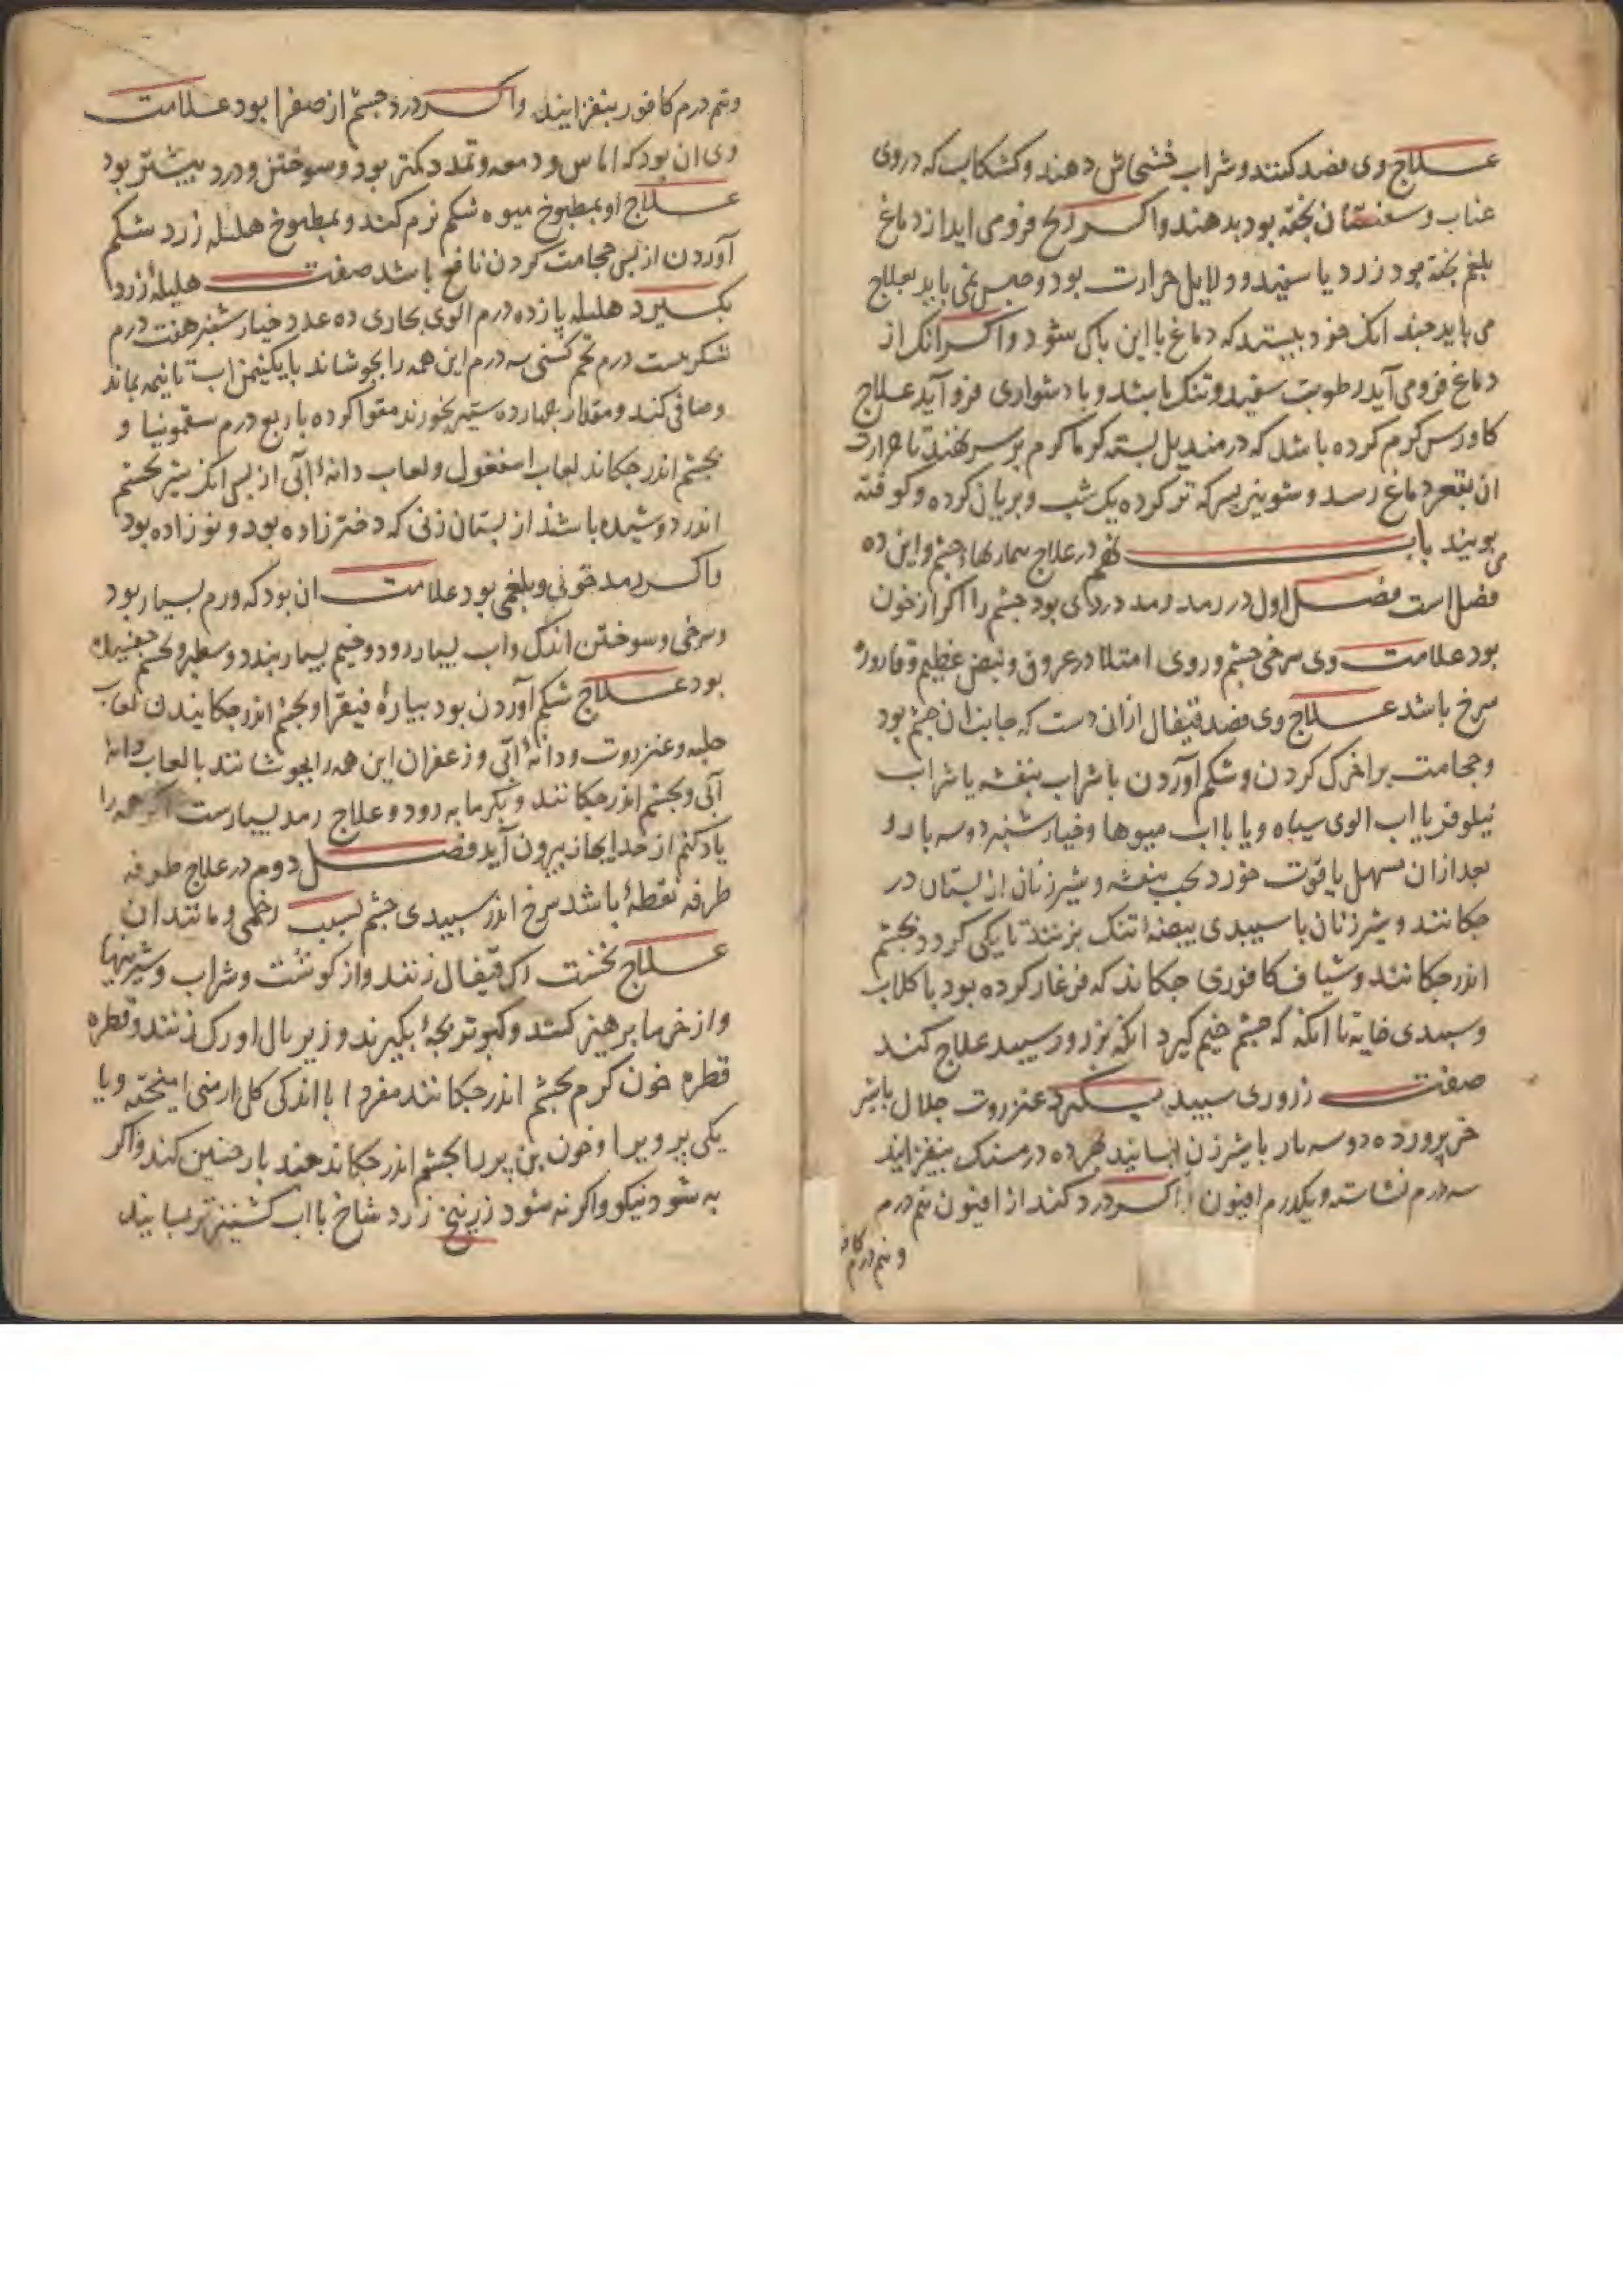 علاج وی فصد کنند و شراب خشخاش دهند و کشکاب که در وی
عناب و سفستان پخته بود بدهند و اکر آنج فرو می اید از دماغ
بلغم پخته بود زرد یا سفید و دلایل حرارت بود و حبس نمی باید بعلاج
می باید جندانک خود بیستد که دماغ با این پاک شود و اکر انک از
دماغ فرو می آید رطوبت سفید و تنک باشد و با دشواری فرو آید علاج
کاورس کرم کرده باشد که در مندیل بسته کرماکرم بر سر نهند تا حرارت
ان بقعر دماغ رسد و شونیز بسرکه تر کرده یک شب و بریان کرده و کوفته
می بویند باب نهم در علاج بیماریهاء چشم و این ده
فصل است فصل اول در رمد و رمد دردی بود جشم را اکر از خون
بود علامت وی سرخی جشم و روی امتلا در عروق و نبض عظیم و قاروره
سرخ باشد علاج وی فصد قیفال از انی دست که جانب ان جشم بود
و حجامت بر اخرک کردن و شکم آوردن با شراب بنفشه یا شراب
نیلوفر یا اب الوی سیاه و یا با اب میوها و خیارشنبر دو سه بار و
بعد ازان مسهل با قوت خورد بحب بنفشه و شیر زنان از بستان در
جکانند و شیر زنان با سبیدی بیضهٔ تنک بزنند تا یکی کردد بجشم
اندر جکانند و شیاف کافوری جکاند که فرغار کرده بود با کلاب
و سبیدی خایه تا انکه که جشم خیم کیرد انکه بزرور سبید علاج کند
صفت زروری سبید بکیرد عنزروت جلال با شیر
خر پرورده دو سه بار با شیر زن بسایند بهر ده درمسنک بیفزایند
سه درم نشاسته و یکدرم افیون و اکر درد کند از افیون نیم درم
و نیم درم کافو
و نیم درم کافور بیفزایند و اکر درد جشم از صفرا بود علامت
وی ان بود که اماس و دمعه و تمدد کمتر بود و سوختن و درد بیشتر بود
علاج او بمطبوخ میوه شکم نرم کند و بمطبوخ هلیله زرد شکم
آوردن از پس حجامت کردن نافع باشد صفت هلیلهٔ زرد
بکیرد هلیله پازده درم الوی بخاری ده عدد خیارشنبر هفت درم
شکر بیست درم تخم کسنی سه درم این همه را بجوشاند با یکنیمن اب تا نیمه بماند
و صافی کند و مقدار جهارده ستیر بخورند مقوا کرده با ربع درم سقمونیا و
بجشم اندر جکاند لعاب اسفغول و لعاب دانهٔ آبی از پس انک شیر بجشم
اندر دوشیده باشذ از بستان زنی که دختر زاده بود و نو زاده بود
و اکر رمد خونی و بلغمی بود علامت ان بود که ورم بسیار بود
و سرخی و سوختن اندک و اب بسیار رود و خیم بسیار بندد و سطبر و بجشم
بود علاج شکم آوردن بود بیارهٔ فیقرا و بجشم اندر جکانیدن لعاب
حلبه و عنزروت و دانهٔ آبی و زعفران این همه را بجوشانند با لعاب دانه
آبی و بجشم اندر جکانند و بکرمابه رود و علاج رمد بسیارست اکر همه را
یاد کنم از حد ایجاز بیرون آید فصل دوم در علاج طرفه
طرفه نقطهٔ باشد سرخ اندر سبیدی جشم بسبب زخمی و مانند ان
علاج نخست رک قیفال زنند و از کوشت و شراب و شیرینیها
و از خرما برهیز کنند و کبوتر بجهٔ بکیرند و زیر بال او رک زنند و قطره
قطره خون کرم بجشم اندر جکانند مفرد یا با اندکی کل ارمنی امیخته و یا
یکی پر ویرا و خون بن پر را بجشم اندر جکاند جند بار جنین کند و اکر
به شود نیکو و اکر نه شود زرنیخ زرد شاخ با اب کشنیز تر بسایند